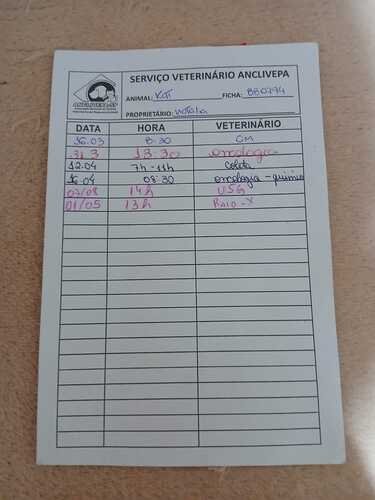 SERVIÇO VETERINÁRIO ANCLIVEPA
ANIMAL: Kat FICHA: 880794
PROPRIETÁRIO: Natalia
DATA HORA VETERINÁRIO
16.03 8:30 CM
31.3 13:30 oncologia
12.04 7h-11h Coleta
16.04 08:30 oncologia - quimio
14h USG
01/05 13h RAIO-X